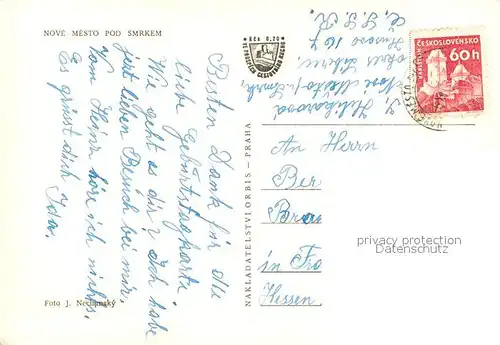 NOVÉ MĚSTO POD SMRKEM
Besten Dank für die
liebe Geburtstagkarte.
Wie geht es dir? Ich habe
jetzt lieben Besuch bei mir.
Vom Heinz höre ich nichts.
Es grüsst dich Ida.
Foto J. Nechanský
Kčs 0,20
NAKLADATELSTVÍ ORBIS – PRAHA
Husova 167
okres Liberec
Nové Město p. Smrk.
Č. S. S. R.
ČESKOSLOVENSKO
60h
An Herrn
Ber
Brau
in Fra
Hessen.
privacy protection
watermark